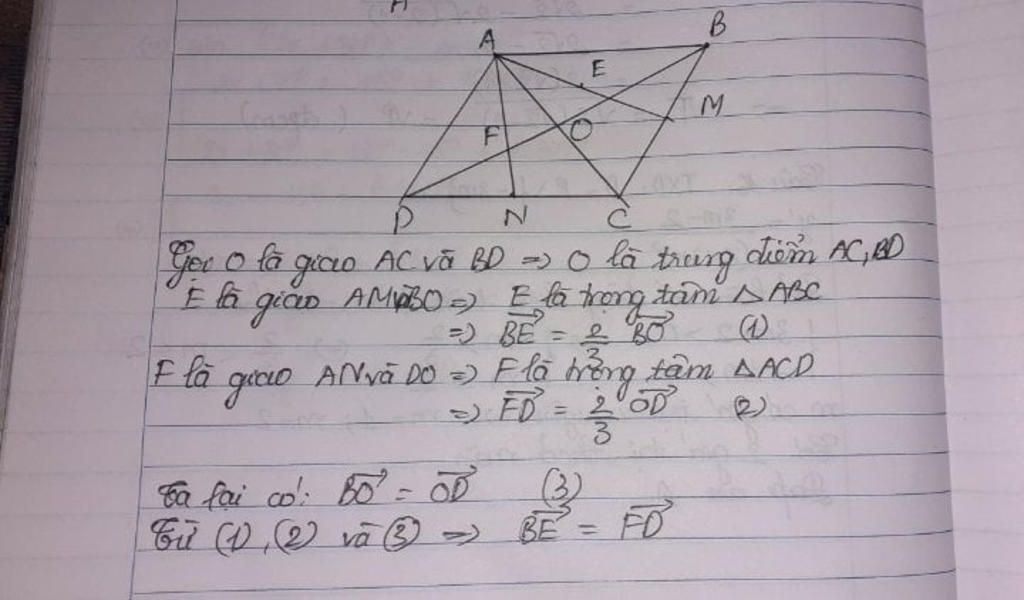 A
A
B
E
M
F
O
D
N
C
Gọi O là giao AC và BD => O là trung điểm AC, BD
E là giao AM và BO => E là trọng tâm △ABC
=> \overrightarrow{BE} = \frac{2}{3} \overrightarrow{BO} (1)
F là giao AN và DO => F là trọng tâm △ACD
=> \overrightarrow{FD} = \frac{2}{3} \overrightarrow{OD} (2)
Ta lại có: \overrightarrow{BO} = \overrightarrow{OD} (3)
Từ (1), (2) và (3) => \overrightarrow{BE} = \overrightarrow{FD}